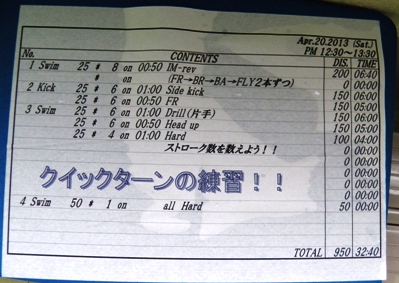 Apr.20.2013 (Sat.)
PM 12:30~13:30
No. CONTENTS DIS. TIME
1 Swim 25 # 8 on 00:50 IM-rev 200 06:40
# on (FR→BR→BA→FLY2本ずつ) 0 00:00
2 Kick 25 # 6 on 01:00 Side kick 150 06:00
25 # 6 on 00:50 FR 150 05:00
3 Swim 25 # 6 on 01:00 Drill(片手) 150 06:00
25 # 6 on 00:50 Head up 150 05:00
25 # 4 on 01:00 Hard 100 04:00
ストローク数を数えよう!! 0 00:00
0 00:00
クイックターンの練習!! 0 00:00
0 00:00
4 Swim 50 # 1 on all Hard 50 00:00
TOTAL 950 32:40